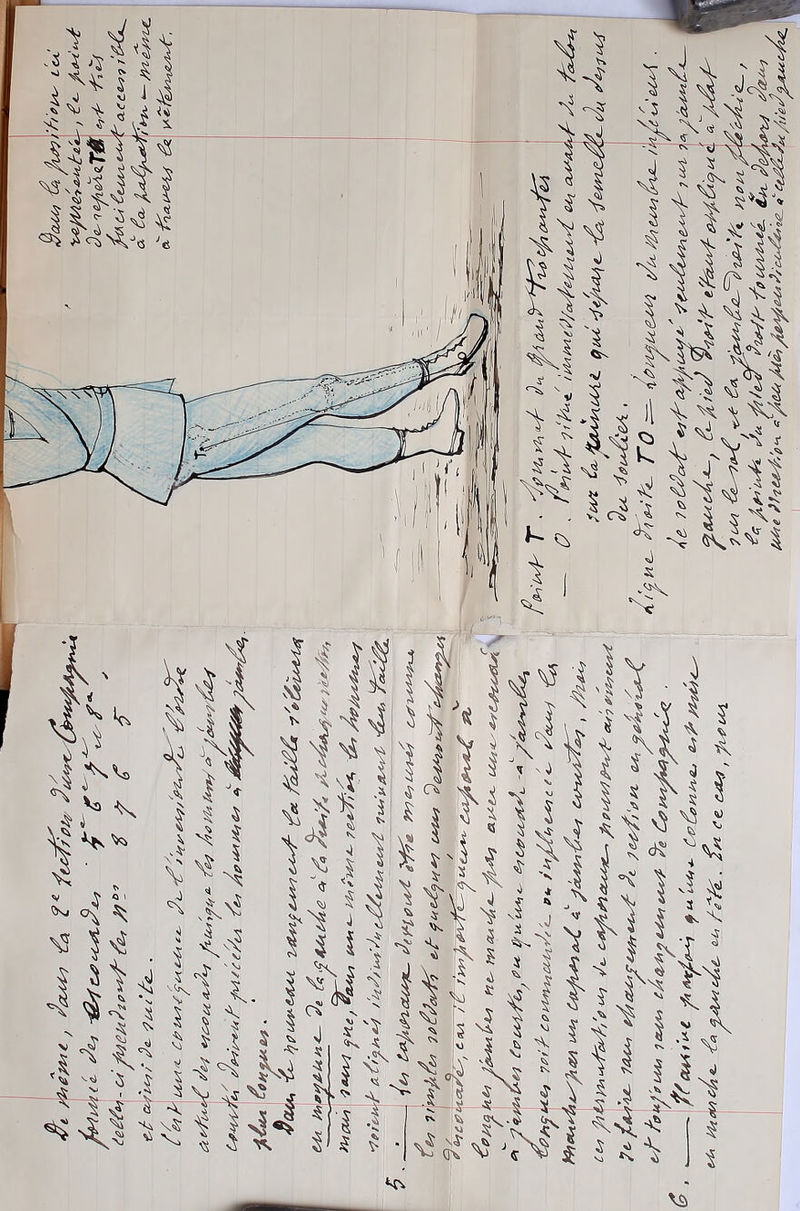 De même, dans la 2e section d'une Compagnie
formée des escouades 5e 6e 7e et 8e,
celles-ci prendront les Nos 8 7 6 5
et ainsi de suite.
C'est une conséquence de l'inversion de l'ordre
actuel des escouades puisque les hommes à jambes
courtes doivent précéder les hommes à jambes
plus longues.
Dans le nouveau rangement la taille s'élèvera
en moyenne de la gauche à la droite de chaque section
mais sans que, dans une même section les hommes
soient alignés individuellement suivant leur taille
5. — Les caporaux devront être mesurés comme
les simples soldats et quelques uns devront changer
d'escouade, car il importe qu'un caporal à
longues jambes ne marche pas avec une escouade
à jambes courtes, ou qu'une escouade à jambes
longues soit commandée ou influencée dans la
marche par un caporal à jambes courtes, mais
ces permutations de caporaux pourront aisément
se faire sans changement de section en général
et toujours sans changement de Compagnie.
6. — Il arrive parfois qu'une colonne est mise
en marche la gauche en tête. En ce cas, pour
Dans la position ici
représentée, le point
de repère T est très
facilement accessible
à la palpation même
à travers le vêtement.
T
O
Point T. Sommet du grand trochanter
— O. Point situé immédiatement en avant du talon
sur la rainure qui sépare la semelle du dessus
du soulier.
Ligne droite TO = Longueur du membre inférieur.
Le soldat est appuyé seulement sur sa jambe
gauche, le pied droit étant appliqué à plat
sur le sol et la jambe droite non fléchie,
la pointe du pied droit tournée en dehors dans
une direction à peu près perpendiculaire à celle du pied gauche